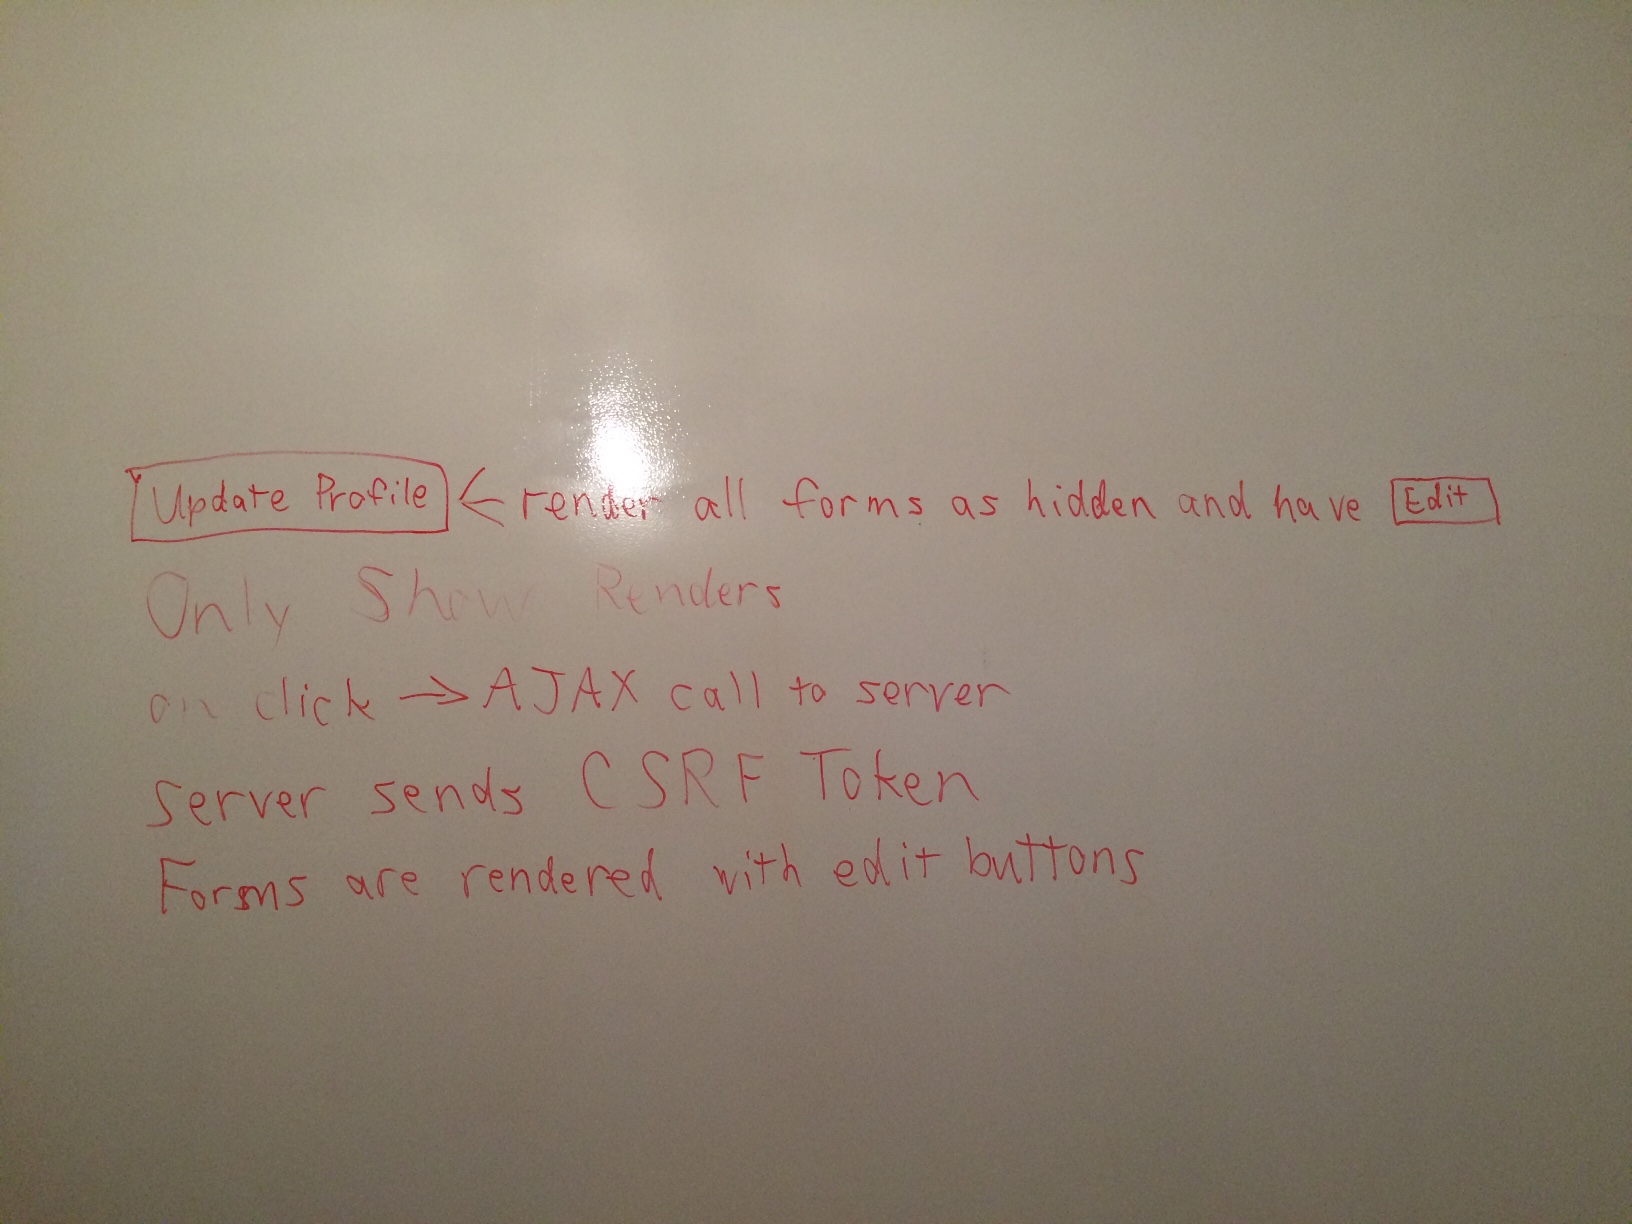 Update Profile ← render all forms as hidden and have Edit
Only Show Renders
on click → AJAX call to server
Server sends CSRF Token
Forms are rendered with edit buttons